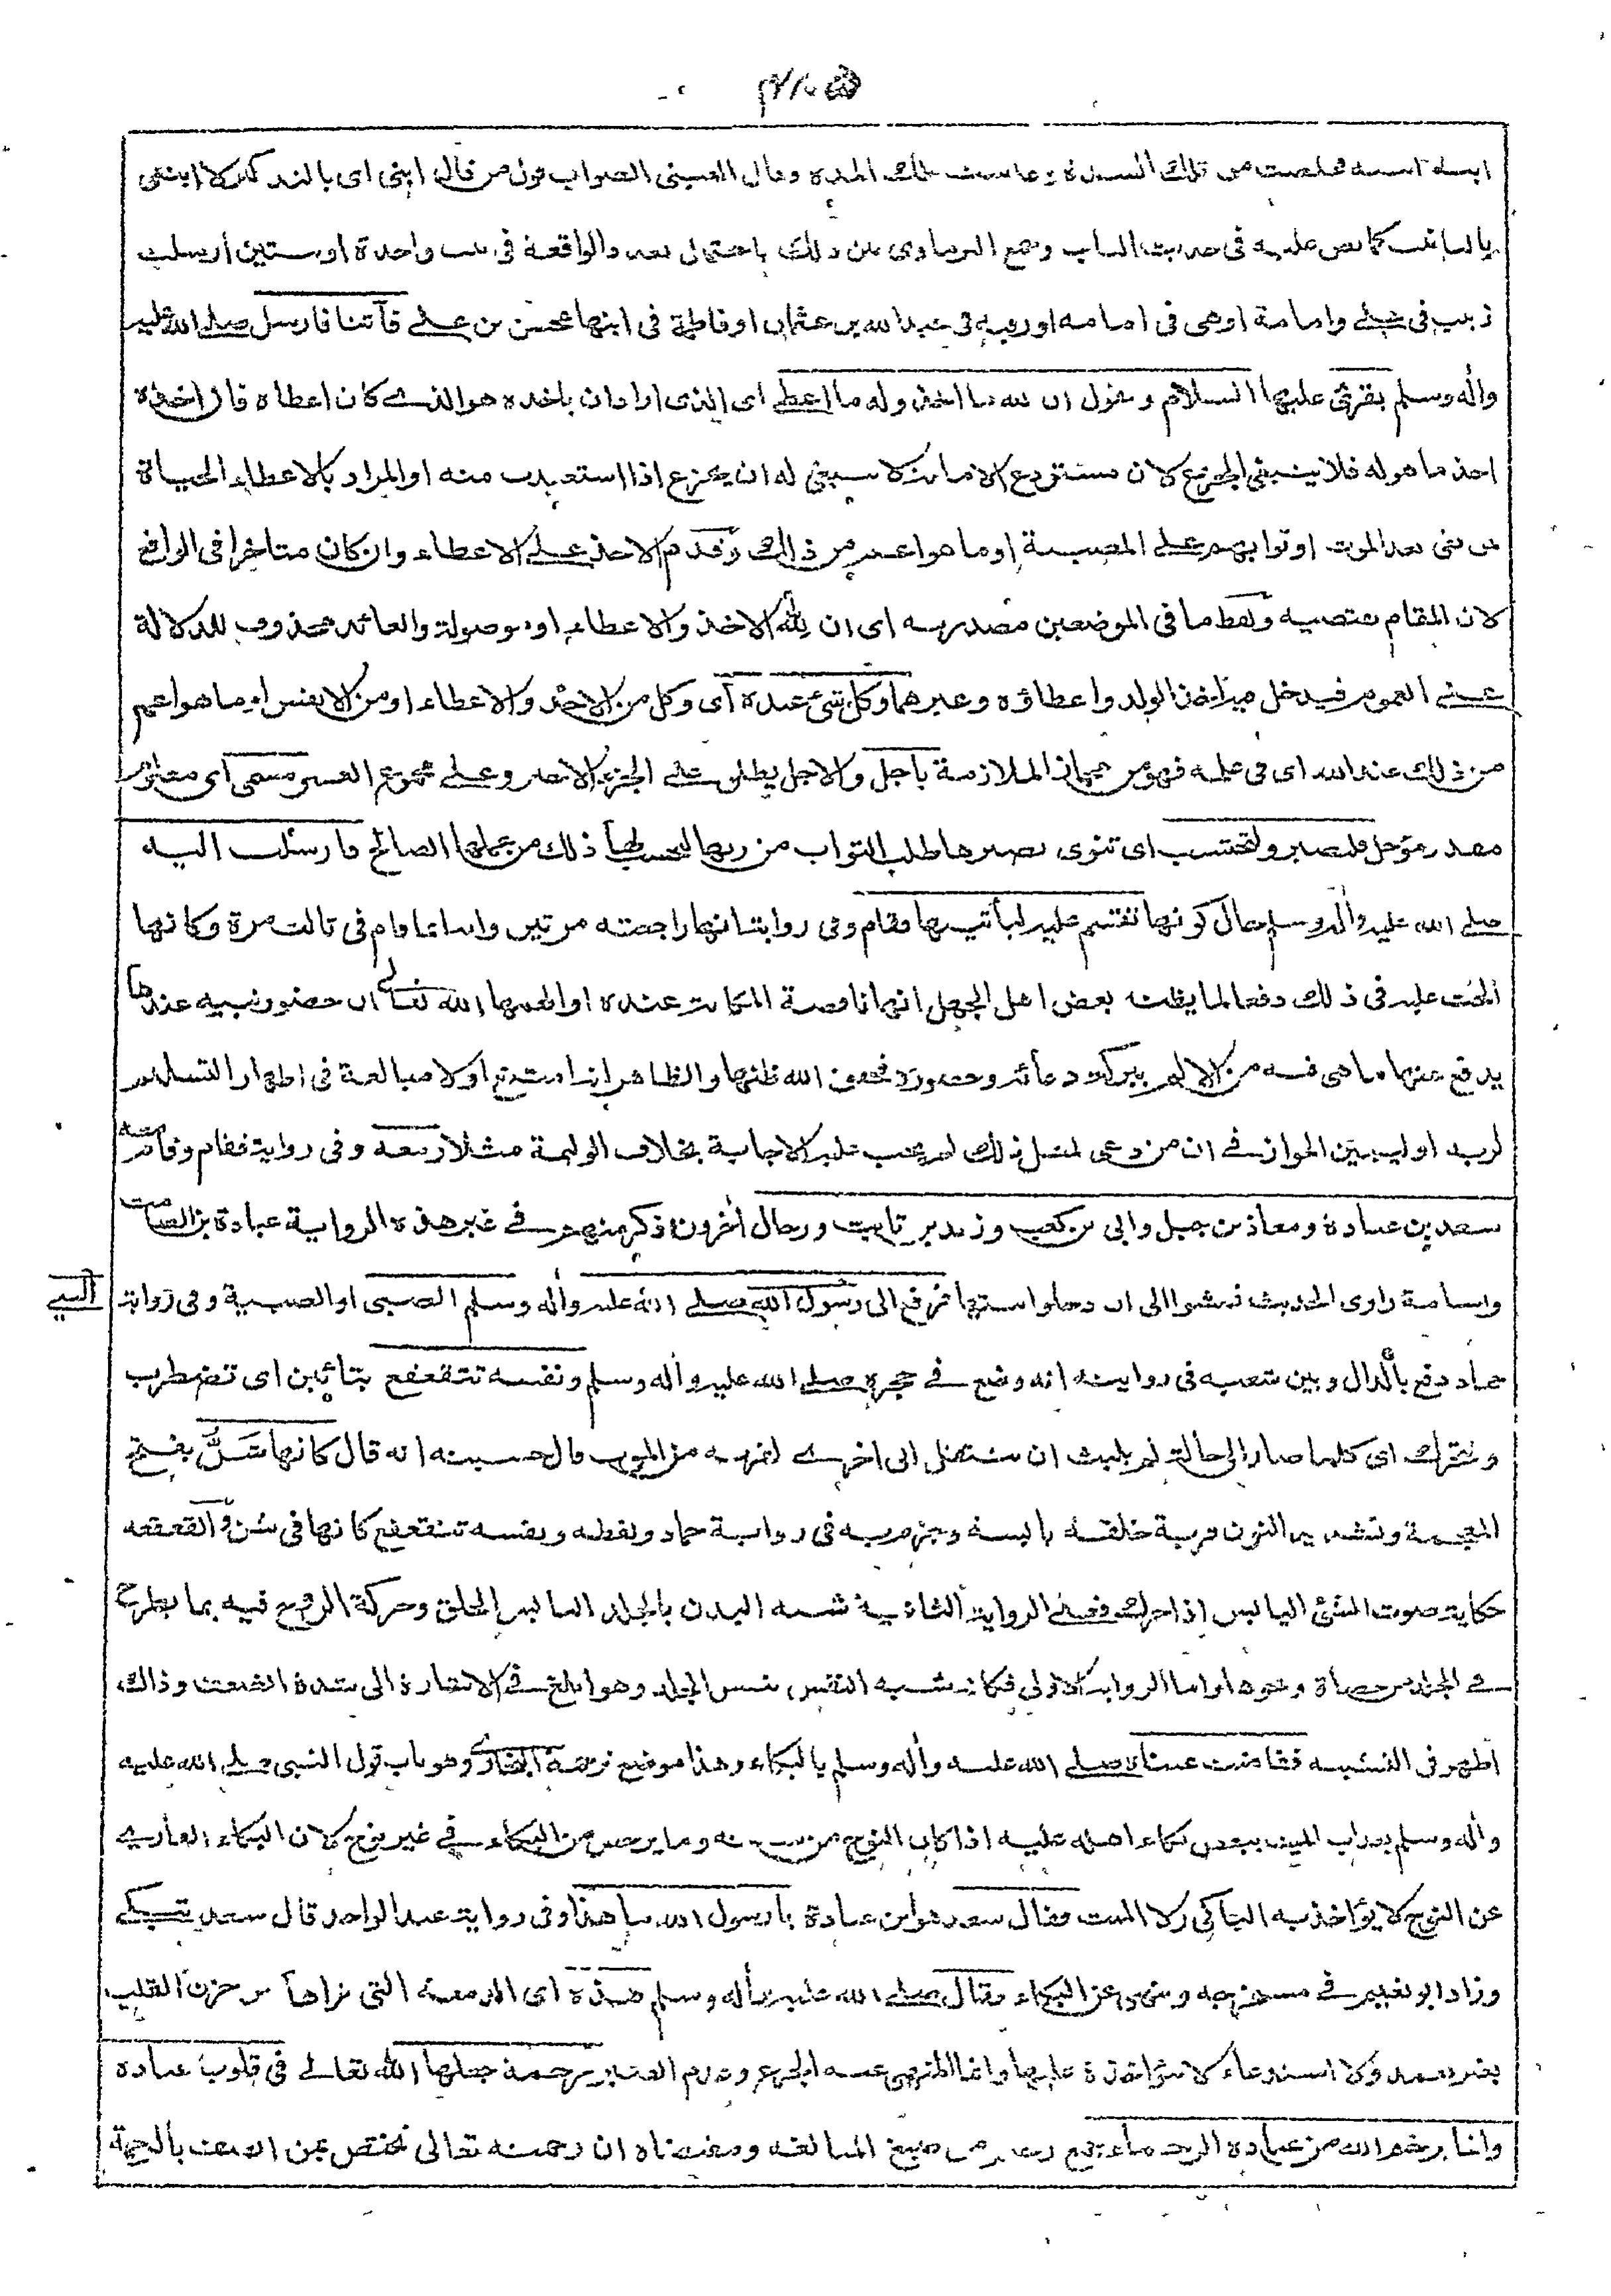 ابنته امامة فخلصت من تلك الشدة وعاشت تلك المدة وقال العيني الصواب قول من قال ابني اى بالتذكير لا ابنتى
بالتانيث كما نص عليه فى حديث الباب وجمع البرماوى بين ذلك باحتمال تعدد الواقعة فى بنت واحدة او بنتين أرسلت
زينب فى علي وامامة او هى فى امامه او رقيه فى عبد الله بن عثمان او فاطمة فى ابنها محسن بن علي فأتنا فارسل صلے الله عليه
وأله وسلم يقرئ عليها السلام ويقول ان لله ما اخذ وله ما اعطے اى الذى اراد ان ياخذه هو الذے كان اعطاه فان اخذه
اخذ ما هو له فلا ينبغى الجزع لان مستودع الامانة لا ينبغى له ان يجزع اذا استعيدت منه او المراد بالاعطاء الحياة
لمن بقى بعد الموت او ثوابهم علے المصيبة او ما هو اعم من ذالك وقدم الاخذ علے الاعطاء وان كان متاخرا فى الواقع
لان المقام يقتضيه ولفظ ما فى الموضعين مصدريه اى ان لله الاخذ والاعطاء او موصولة والعائد محذوف للدلالة
علے العموم فيدخل فيه اخذ الولد واعطاؤه وغيرهما وكل شئ عنده أى وكل من الاخذ والاعطاء او من الانفس او ما هو اعم
من ذلك عند الله اى فى علمه فهو من مجاز الملازمة بأجل والاجل يطلق علے الجزء الاخير وعلے مجموع العمر مسمى اى معلوم
مقدر مؤجل فلتصبر ولتحتسب اى تنوى بصبرها طلب الثواب من ربها ليحسب لها ذلك من عملها الصالح فارسلت اليه
صلے الله عليه وأله وسلم حال كونها تقسم عليه ليأتينها فقام وفى رواية انها راجعته مرتين وانه انما قام فى ثالث مرة وكانها
ألحت عليه فى ذلك دفعا لما يظنه بعض اهل الجهل انها ناقصة المكانة عنده او الهمها الله تعالے ان حضور نبيه عندها
يدفع عنها ما هى فيه من الالم ببركة دعائه وحضوره فحقق الله ظنها والظاهر انه امتنع اولا مبالغة فى اظهار التسليم
لربه او ليبين الجواز فے ان من دعى لمثل ذلك لم يجب عليه الاجابة بخلاف الوليمة مثلا ومعه وفى رواية فقام وقام معه
سعد بن عبادة ومعاذ بن جبل وابى بن كعب وزيد بن ثابت ورجال أخرون ذكر منهم فے غير هذه الرواية عبادة بن الصامت
واسامة راوى الحديث فمشوا الى ان دخلوا بيتها فرفع الى رسول الله صلے الله عليه وأله وسلم الصبى او الصبية وفى رواية
حماد دفع بالدال وبين شعبه فى روايته انه وضع فے حجره صلے الله عليه وأله وسلم ونفسه تتقعقع بتائين اى تضطرب
وتتحرك اى كلما صار الى حالة لم يلبث ان ينتقل الى اخرے لقربه من الموت قال حسبته انه قال كانها شَنٌّ بفتح
المعجمة وتشديد النون قربة خلقة يابسة وجزم به فى رواية حماد ولفظه ونفسه تتقعقع كانها فى شن والقعقعه
حكاية صوت الشئ اليابس اذا حرك فعلے الرواية الثانية شبه البدن بالجلد اليابس الخلق وحركة الروح فيه بما يطرح
فے الجلد من حصاة ونحوها واما الرواية الاولى فكانه شبه النفس بنفس الجلد وهو ابلغ فے الاشارة الى شدة الضعف وذالك
اظهر فى التشبيه ففاضت عيناه صلے الله عليه وأله وسلم بالبكاء وهذا موضع ترجمة البخارى وهو باب قول النبى صلے الله عليه
وأله وسلم يعذب الميت ببعض بكاء اهله عليه اذا كان النوح من سنته وما يرخص من البكاء فے غير نوح لان البكاء العارے
عن النوح لا يؤاخذ به الباكى ولا الميت فقال سعد هو ابن عبادة يا رسول الله ما هذا وفى رواية عبد الواحد قال سعد تبكے
وزاد ابو نعيم فے مستخرجه وتنهى عن البكاء فقال صلے الله عليه وأله وسلم هذه اى الدمعة التى تراها من حزن القلب
بغير تعمد ولا استدعاء لا مؤاخذة عليها وانما المنهى عنه الجزع وعدم الصبر رحمة جعلها الله تعالے فى قلوب عباده
وانما يرحم الله من عباده الرحماء جمع رحيم من صيغ المبالغة ومقتضاه ان رحمته تعالى تختص بمن اتصف بالرحمة